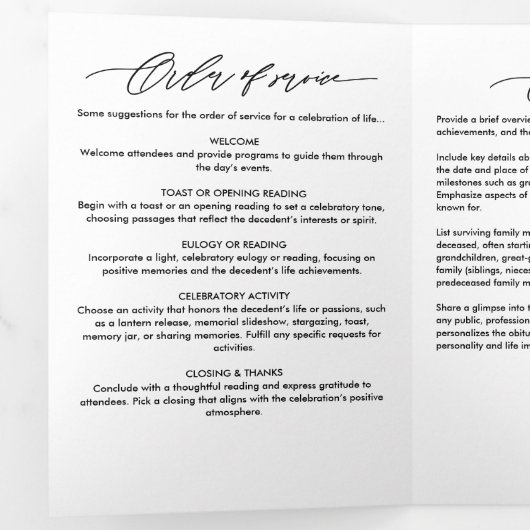 Order of service
Some suggestions for the order of service for a celebration of life...
WELCOME
Welcome attendees and provide programs to guide them through
the day's events.
TOAST OR OPENING READING
Begin with a toast or an opening reading to set a celebratory tone,
choosing passages that reflect the decedent's interests or spirit.
EULOGY OR READING
Incorporate a light, celebratory eulogy or reading, focusing on
positive memories and the decedent's life achievements.
CELEBRATORY ACTIVITY
Choose an activity that honors the decedent's life or passions, such
as a lantern release, memorial slideshow, stargazing, toast,
memory jar, or sharing memories. Fulfill any specific requests for
activities.
CLOSING & THANKS
Conclude with a thoughtful reading and express gratitude to
attendees. Pick a closing that aligns with the celebration's positive
atmosphere.
Provide a brief overvie
achievements, and the
Include key details ab
the date and place of
milestones such as gra
Emphasize aspects of
known for.
List surviving family m
deceased, often startin
grandchildren, great-g
family (siblings, nieces
predeceased family m
Share a glimpse into t
any public, profession
personalizes the obitu
personality and life im